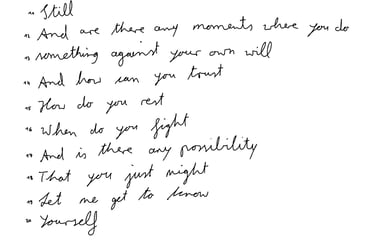 Still
And are there any moments where you do
something against your own will
And how can you trust
How do you rest
When do you fight
And is there any possibility
That you just might
Let me get to know
Yourself